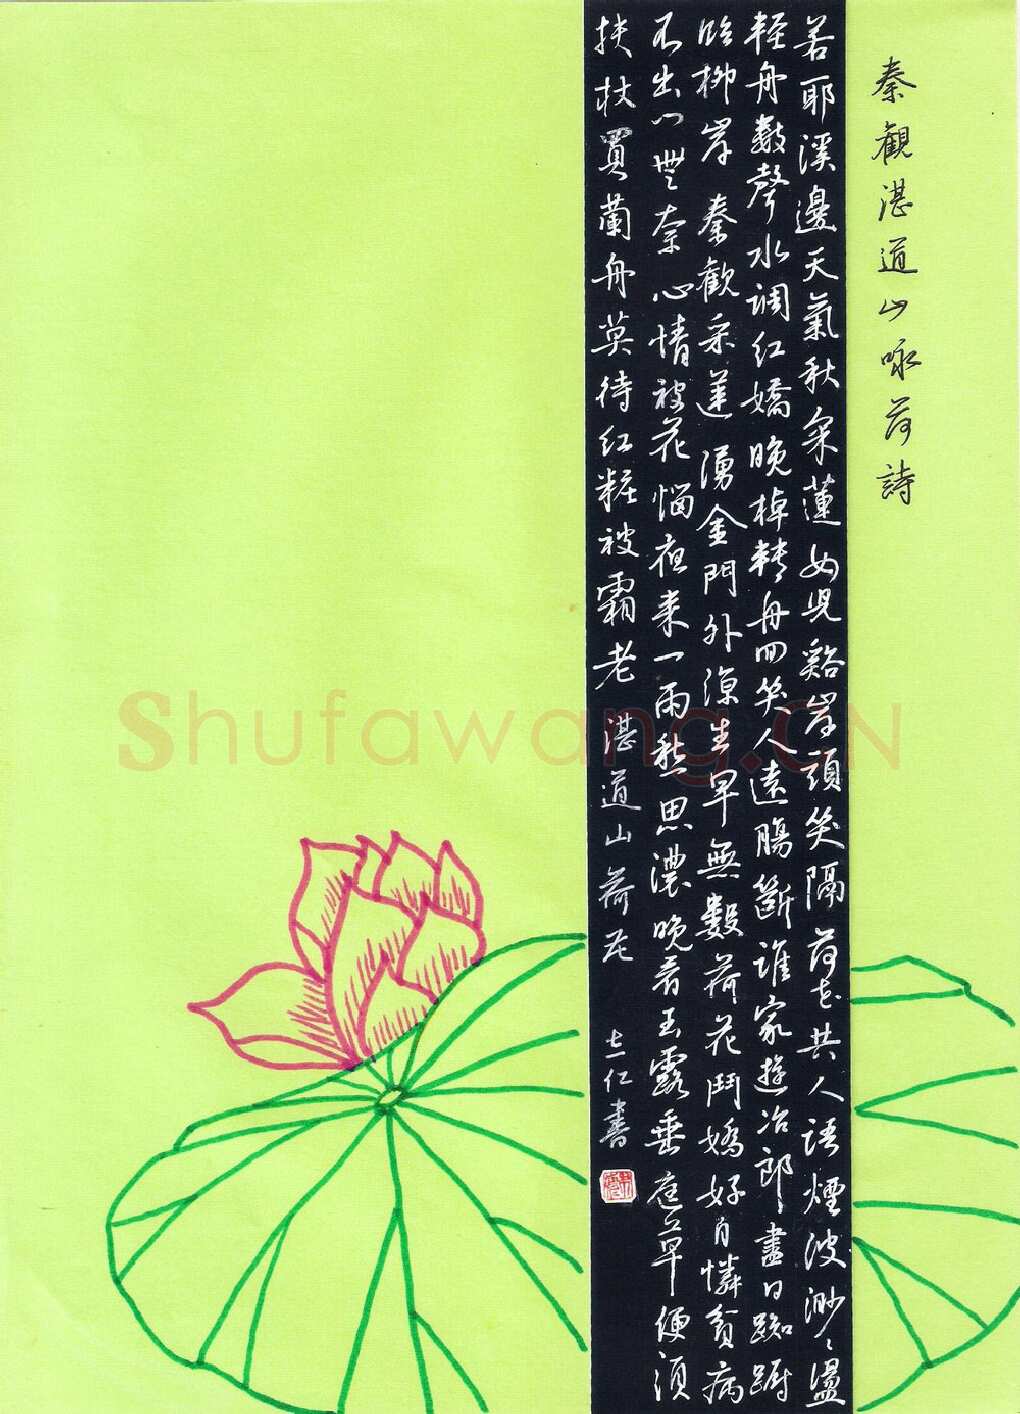 秦觀湛道山咏荷詩
若耶溪邊天氣秋采蓮女兒谿岸頭笑隔荷花共人語煙波渺渺盪
輕舟數聲水調紅嬌晚棹轉舟回笑人遠腸斷誰家遊冶郎盡日踟躕
臨柳岸 秦觀采蓮 湧金門外涼生早無數荷花鬥嬌好自憐貧病
不出門無奈心情被花惱夜來一雨愁思濃晚看玉露垂庭草便須
扶杖買蘭舟莫待紅粧被霜老 湛道山荷花 仁書
Shufawang.CN